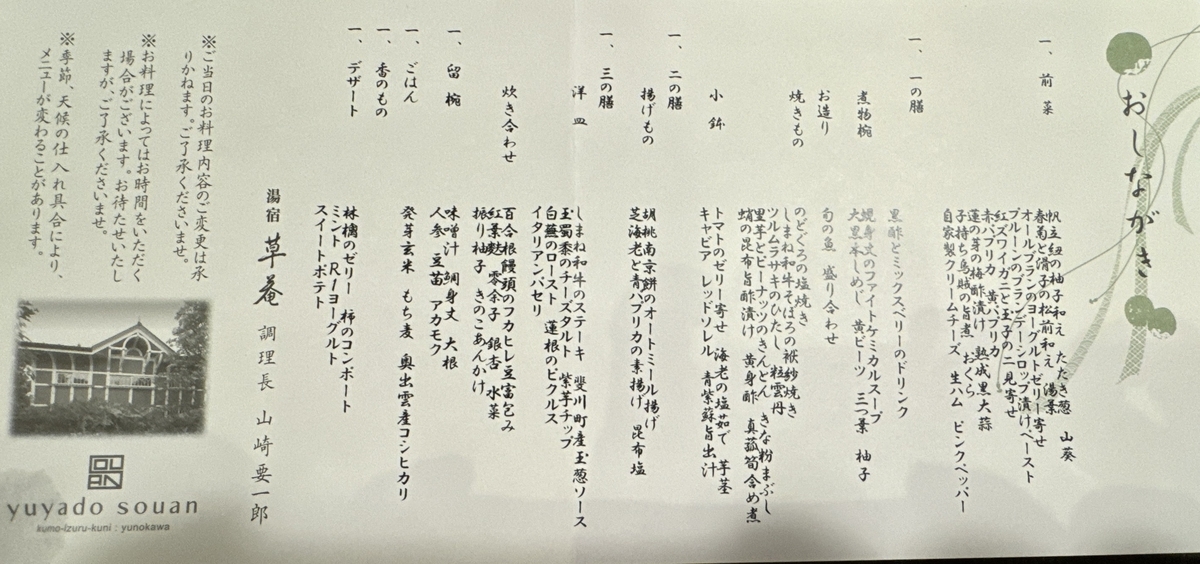 おしながき
一、前菜
帆立紐の柚子和え たたき葱 山葵
春菊と滑子の松前和え 湯葉
オールブランのヨーグルトゼリー寄せ
プルーンのブランデーシロップ漬け ペースト
紅ズワイガニと玉子の二見寄せ
赤パプリカ 黄パプリカ
蓮の芽の梅酢漬け 熟成黒大蒜
子持ち烏賊の旨煮 おくら
自家製クリームチーズ 生ハム ピンクペッパー
一、一の膳
黒酢とミックスベリーのドリンク
煮物椀
鯛身丈のファイトケミカルスープ
大黒本しめじ 黄ビーツ 三つ葉 柚子
お造り
旬の魚 盛り合わせ
焼きもの
のどぐろの塩焼き
しまね和牛そぼろの袱紗焼き
ツルムラサキのひたし 粒雲丹
里芋とピーナッツのきんとん きな粉まぶし
蛸の昆布旨酢漬け 黄身酢 真菰筍含め煮
小鉢
トマトのゼリー寄せ 海老の塩茹で 芋茎
キャビア レッドソレル 青紫蘇旨出汁
一、二の膳
揚げもの
胡桃南京餅のオートミール揚げ
芝海老と青パプリカの素揚げ 昆布塩
一、三の膳
洋皿
しまね和牛のステーキ 斐川町産玉葱ソース
玉蜀黍のチーズタルト 紫芋チップ
白蕪のロースト 蓮根のピクルス
イタリアンパセリ
炊き合わせ
百合根饅頭のフカヒレ豆富包み
紅葉麩 零余子 銀杏 水菜
振り柚子 きのこあんかけ
一、留椀
味噌汁 鯛身丈 大根
人参 豆苗 アカモク
一、ごはん
発芽玄米 もち麦 奥出雲産コシヒカリ
一、香のもの
一、デザート
林檎のゼリー 柿のコンポート
ミント R-1ヨーグルト
スイートポテト
湯宿 草菴 調理長 山崎要一郎
※ご当日のお料理内容のご変更は承
りかねます。ご了承くださいませ。
※お料理によってはお時間をいただく
場合がございます。お待たせいたし
ますが、ご了承くださいませ。
※季節、天候の仕入れ具合により、
メニューが変わることがあります。
SOUAN
yuyado souan
kumo-izuru-kuni : yunokawa